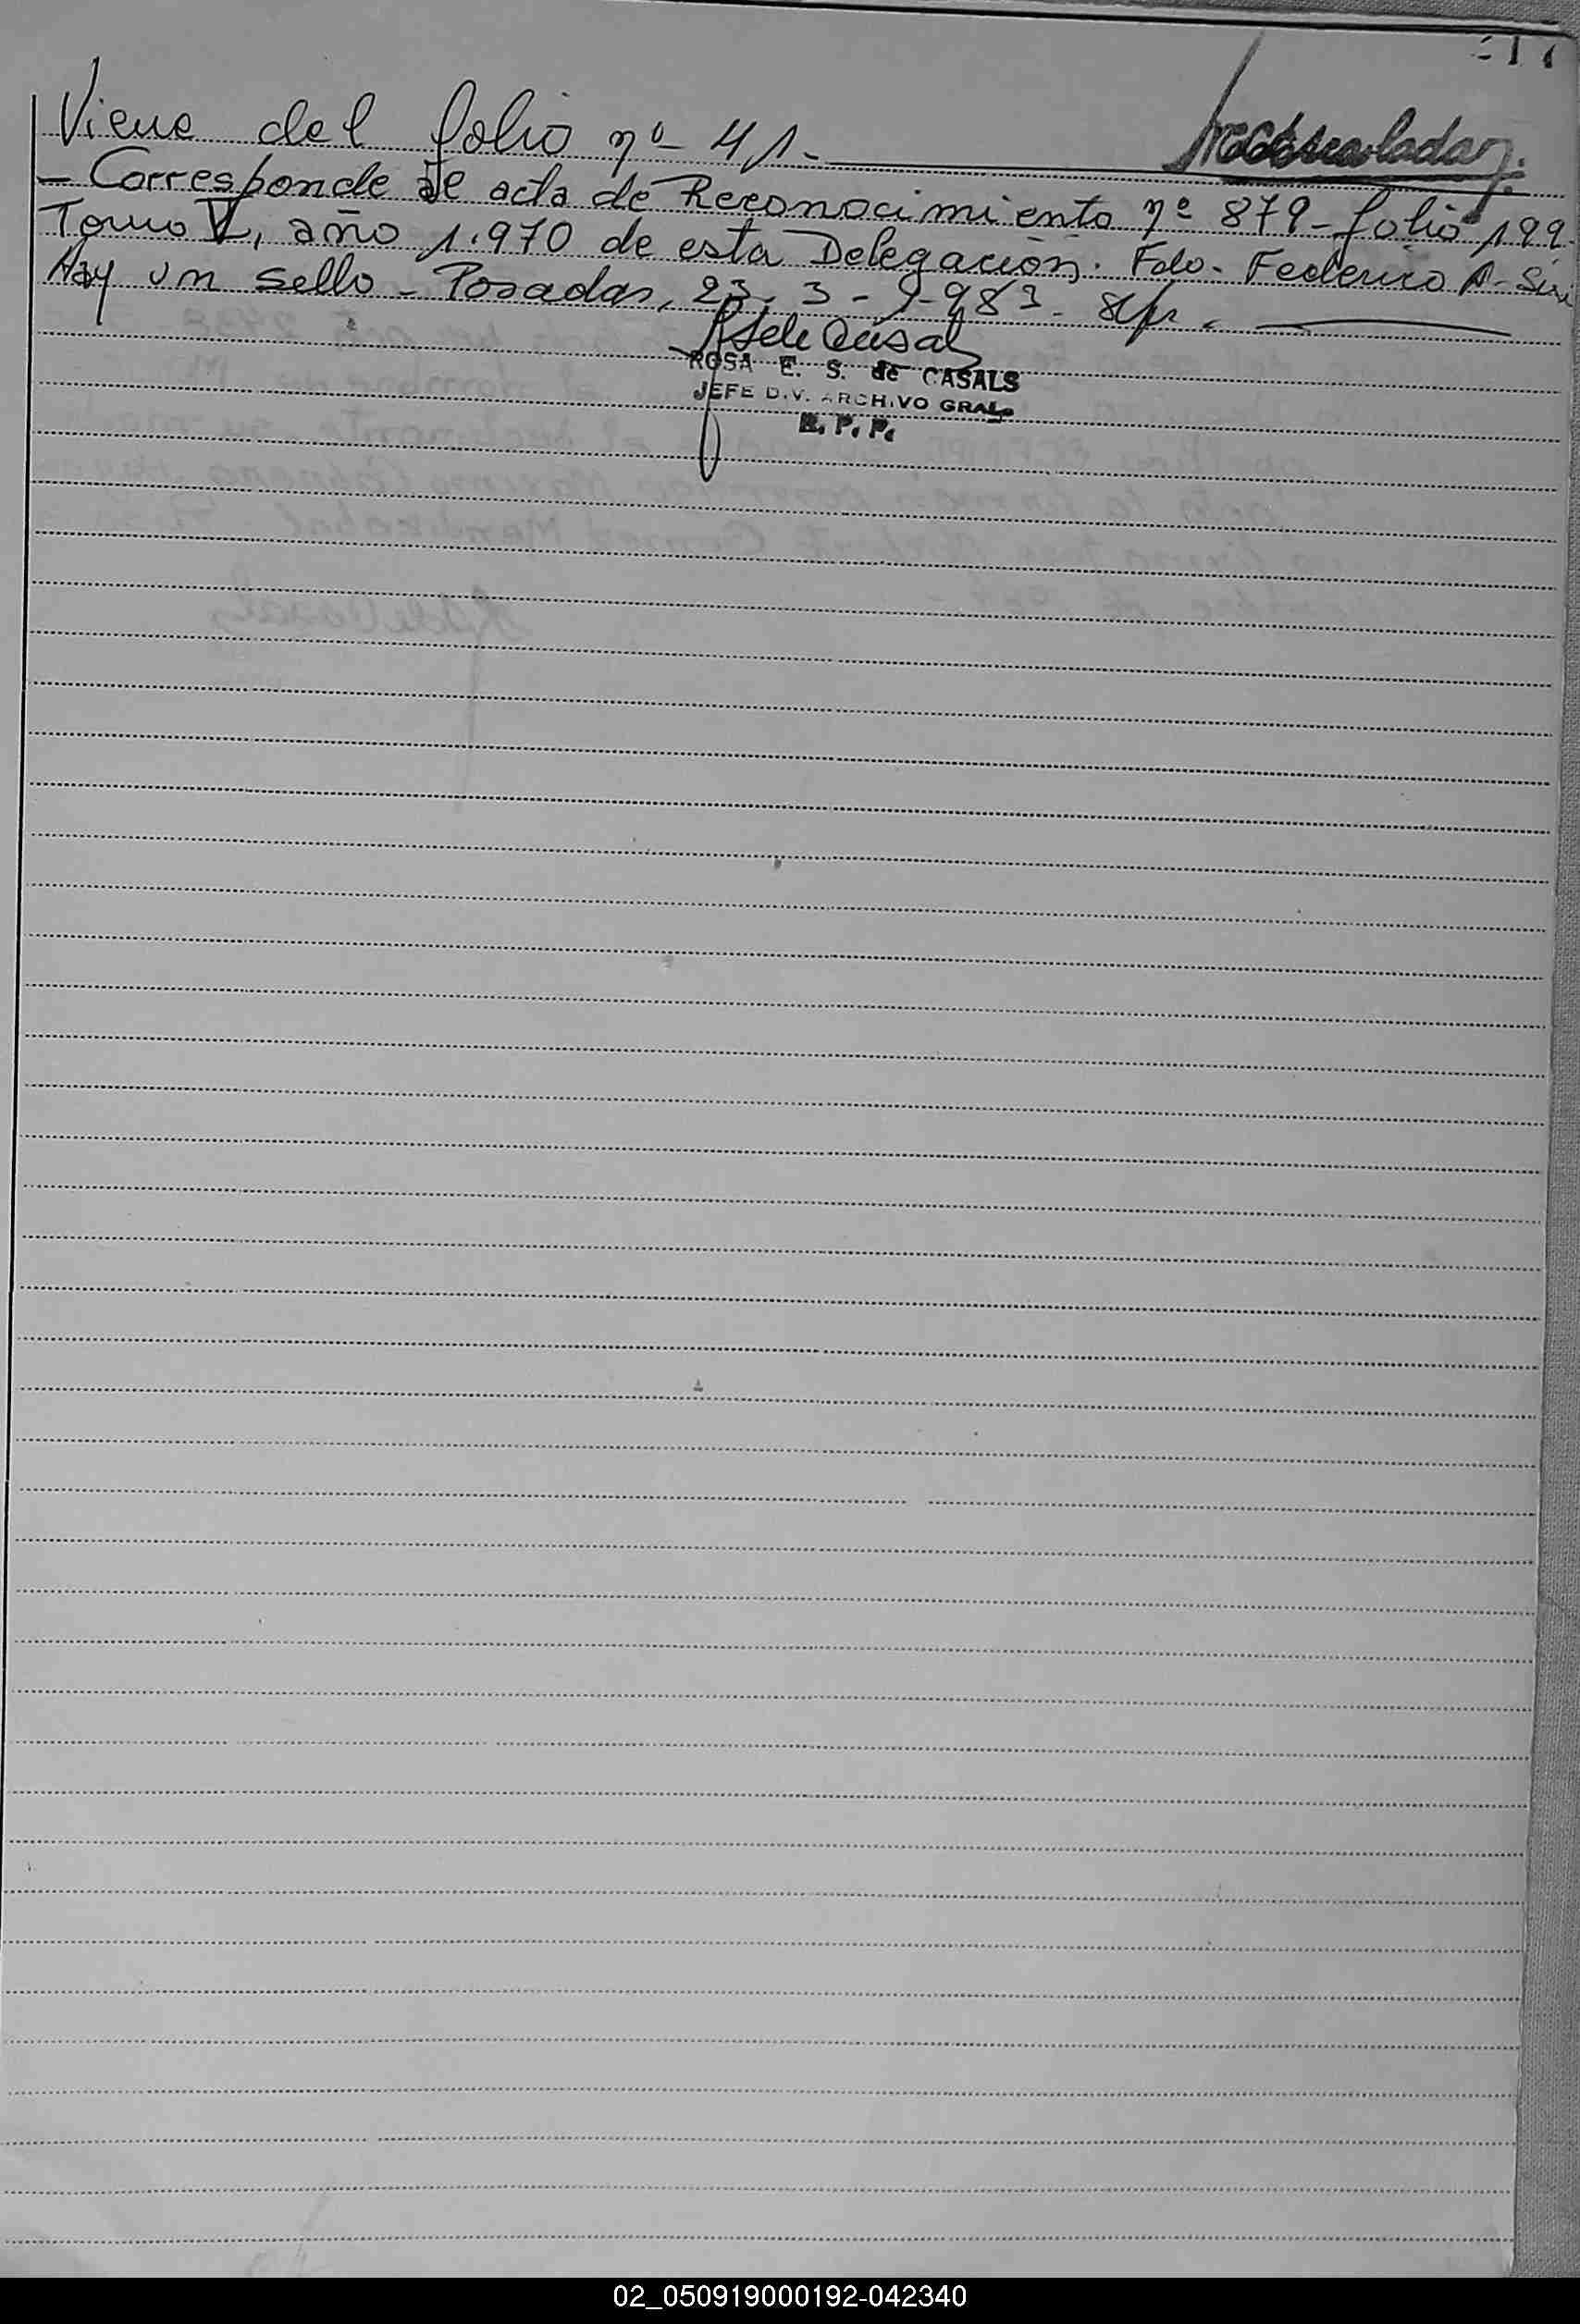 Viene del folio nº 41.
- Corresponde al acta de Reconocimiento nº 879 - folio 199.
Tomo V, año 1.970 de esta Delegación. Fdo. Federico A.
Hay un sello - Posadas, 23 - 3 - 1.983.
ROSA E. S. de CASALS
JEFE DIV. ARCHIVO GRAL.
R. P. P.
02_050919000192-042340